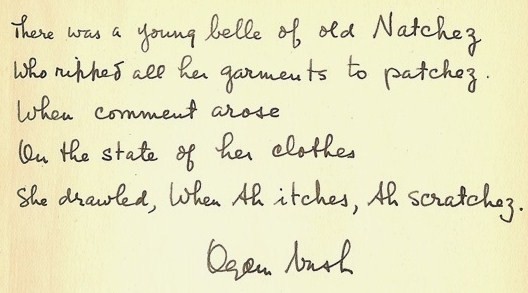 There was a young belle of old Natchez
Who ripped all her garments to patchez.
When comment arose
On the state of her clothes
She drawled, When Ah itches, Ah scratchez.
Ogden Nash